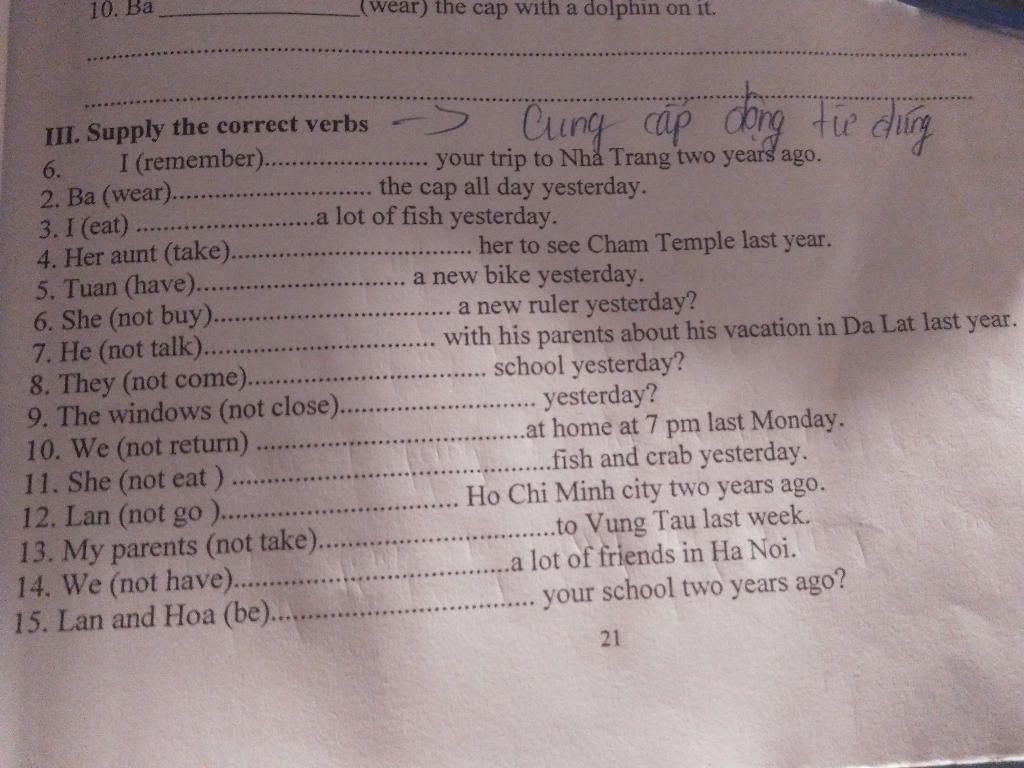 10. Ba ____________________ (wear) the cap with a dolphin on it.
III. Supply the correct verbs -> Cung cấp động từ đúng
6. I (remember)............................ your trip to Nha Trang two years ago.
2. Ba (wear)................................. the cap all day yesterday.
3. I (eat) ..............................a lot of fish yesterday.
4. Her aunt (take)........................................ her to see Cham Temple last year.
5. Tuan (have)................................... a new bike yesterday.
6. She (not buy)....................................... a new ruler yesterday?
7. He (not talk)...................................... with his parents about his vacation in Da Lat last year.
8. They (not come)....................................... school yesterday?
9. The windows (not close)................................ yesterday?
10. We (not return) ............................................at home at 7 pm last Monday.
11. She (not eat ) .....................................................fish and crab yesterday.
12. Lan (not go )....................................... Ho Chi Minh city two years ago.
13. My parents (not take).......................................to Vung Tau last week.
14. We (not have)..............................................a lot of friends in Ha Noi.
15. Lan and Hoa (be)........................................... your school two years ago?
21